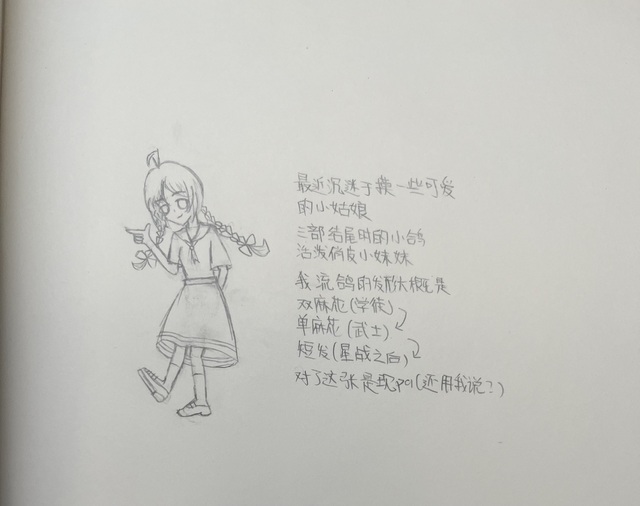 最近沉迷于摸一些可爱
的小姑娘
三部结尾时的小鸽
活发俏皮小妹妹
我流鸽的发形大概是
双麻花(学徒)
单麻花(武士)
短发(星战之后)
对了这张是现pa(还用我说?)